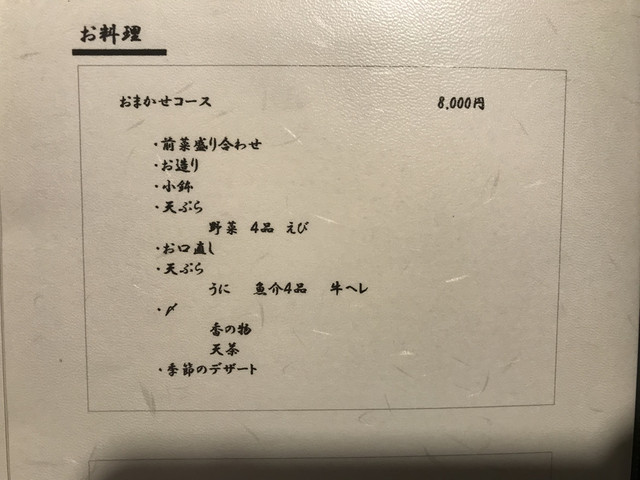 お料理
おまかせコース 8,000円
・前菜盛り合わせ
・お造り
・小鉢
・天ぷら
野菜 4品 えび
・お口直し
・天ぷら
うに 魚介4品 牛ヘレ
・〆
香の物
天茶
・季節のデザート